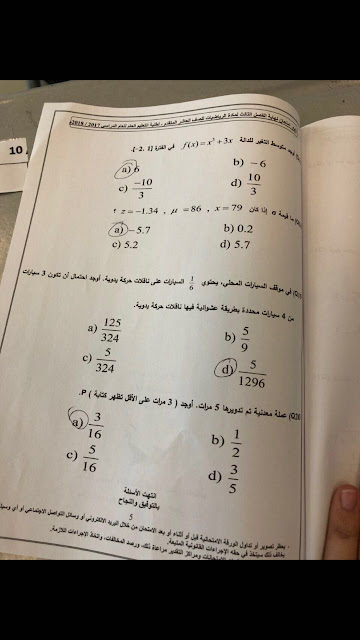 امتحان نهاية الفصل الثالث لمادة الرياضيات للصف العاشر المتقدم - أغلبية التعليم العام للعام الدراسي 2017 / 2018
10
وجد متوسط التغير للدالة f(x) = x³ + 3x في الفترة [-2, 1].
a) 6 b) -6
c) -10/3 d) 10/3
ما قيمة σ إذا كان z = -1.34 , μ = 86 , x = 79 ؟
a) -5.7 b) 0.2
c) 5.2 d) 5.7
في موقف السيارات المحلي، يحتوي 1/6 السيارات على ناقلات حركة يدوية. أوجد احتمال أن تكون 3 سيارات
من 4 سيارات محددة بطريقة عشوائية فيها ناقلات حركة يدوية.
a) 125/324 b) 5/9
c) 5/324 d) 5/1296
(Q20 عملة معدنية تم تدويرها 5 مرات، أوجد ( 3 مرات على الأقل تظهر كتابة ) P.
a) 3/16 b) 1/2
c) 5/16 d) 3/5
انتهت الأسئلة
بالتوفيق والنجاح
5
- يحظر تصوير أو تداول الورقة الامتحانية قبل أو أثناء أو بعد الامتحان من خلال البريد الالكتروني أو وسائل التواصل الاجتماعي أو أي وسيلة
بخلاف ذلك سيتخذ في حقه الإجراءات القانونية المتبعة.
الامتحانات ومراكز التقدير مراعاة ذلك، ورصد المخالفات، واتخاذ الإجراءات اللازمة.